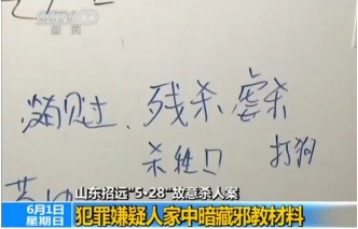 CCTV
新闻
残杀 虐杀
杀牲口 打狗
山东招远“5·28”故意杀人案
6月1日
星期日
犯罪嫌疑人家中暗藏邪教材料